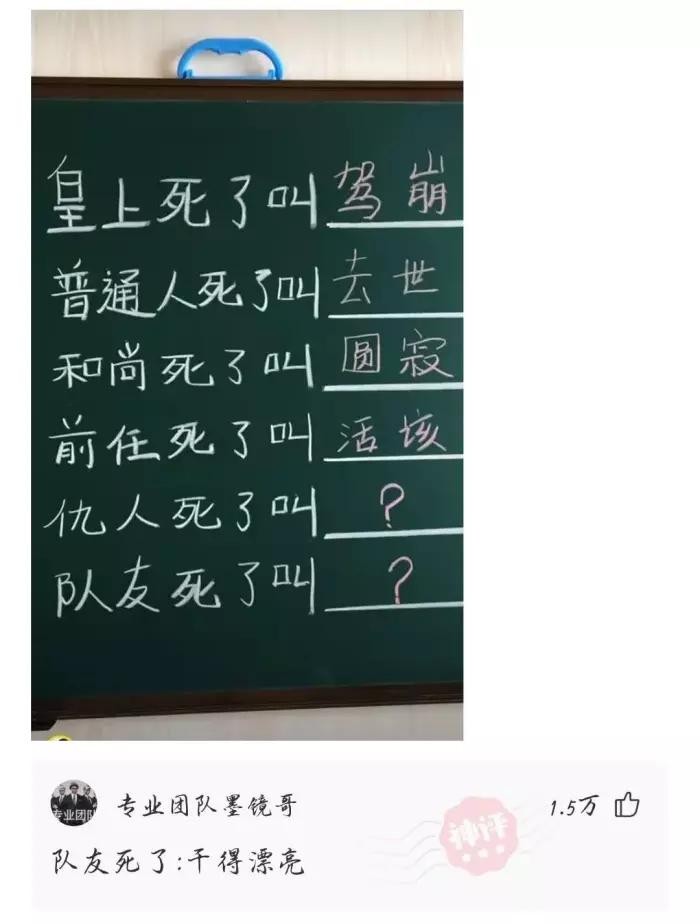 皇上死了叫驾崩
普通人死了叫去世
和尚死了叫圆寂
前任死了叫活该
仇人死了叫?
队友死了叫?
专业团队
专业团队墨镜哥
1.5万
神评
队友死了:干得漂亮